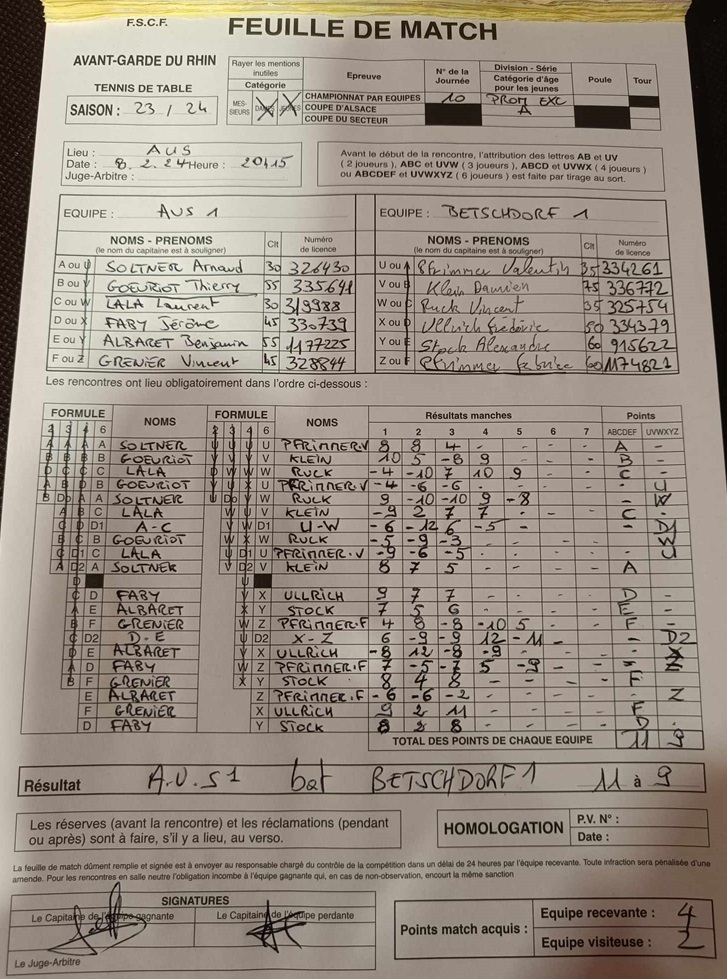 F.S.C.F.
FEUILLE DE MATCH
AVANT-GARDE DU RHIN
TENNIS DE TABLE
SAISON : 23 / 24
Rayer les mentions inutiles
Catégorie
MESSIEURS
Epreuve
CHAMPIONNAT PAR EQUIPES
COUPE D'ALSACE
COUPE DU SECTEUR
N° de la Journée
10
Division - Série
Catégorie d'âge pour les jeunes
PROM EXC
A
Poule
Tour
Lieu : AUS
Date : 8.2.24 Heure : 20h15
Juge-Arbitre :
Avant le début de la rencontre, l'attribution des lettres AB et UV
( 2 joueurs ), ABC et UVW ( 3 joueurs ), ABCD et UVWX ( 4 joueurs )
ou ABCDEF et UVWXYZ ( 6 joueurs ) est faite par tirage au sort.
EQUIPE : AUS 1
NOMS - PRENOMS Clt Numéro de licence
(le nom du capitaine est à souligner)
A ou U SOLTNER Arnaud 30 326430
B ou V GOEURIOT Thierry 55 335641
C ou W LALA Laurent 30 319988
D ou X FABY Jérôme 45 330739
E ou Y ALBARET Benjamin 55 1177225
F ou Z GRENIER Vincent 45 328844
EQUIPE : BETSCHDORF 1
NOMS - PRENOMS Clt Numéro de licence
(le nom du capitaine est à souligner)
U ou A Pfrimmer Valentin 35 334261
V ou B Klein Damien 75 336772
W ou C Ruck Vincent 35 325754
X ou D Ullrich Frédéric 50 334379
Y ou E Stock Alexandre 60 915622
Z ou F Pfrimmer Fabrice 60 1174821
Les rencontres ont lieu obligatoirement dans l'ordre ci-dessous :
FORMULE NOMS FORMULE NOMS Résultats manches Points
2 3 4 6 2 3 4 6 1 2 3 4 5 6 7 ABCDEF UVWXYZ
A SOLTNER U PFRIMMER.V 9 8 4 - - - - A -
B GOEURIOT V KLEIN 10 5 -8 9 - - B -
C LALA W RUCK -4 -10 7 10 9 - - C -
B GOEURIOT U PFRIMMER.V -4 -6 -6 - - - - - U
A SOLTNER W RUCK 9 -10 -10 9 -8 - W
C LALA V KLEIN -9 2 7 7 - - - C -
D1 A-C D1 U-W -6 -12 6 -5 - - - D1
B GOEURIOT W RUCK -5 -9 -3 - - W
C LALA U PFRIMMER.V -9 -6 -5 - - U
A SOLTNER V KLEIN 8 7 5 - - A
D FABY X ULLRICH 9 7 7 - - - - D -
E ALBARET Y STOCK 7 5 6 - - - - E -
F GRENIER Z PFRIMMER.F 4 8 -8 -10 5 - - F -
D2 D-E D2 X-Z 6 -9 -9 12 -11 - - D2
E ALBARET X ULLRICH -8 12 -8 -9 - X
D FABY Z PFRIMMER.F 7 -5 -7 5 -9 - - - Z
F GRENIER Y STOCK 8 4 8 - - - - F
E ALBARET Z PFRIMMER.F -6 -6 -2 - - Z
F GRENIER X ULLRICH 9 2 11 - - - F
D FABY Y STOCK 8 2 8 - - - - D -
TOTAL DES POINTS DE CHAQUE EQUIPE 11 9
Résultat A.U.S1 bat BETSCHDORF 1 11 à 9
Les réserves (avant la rencontre) et les réclamations (pendant
ou après) sont à faire, s'il y a lieu, au verso.
HOMOLOGATION
P.V. N° :
Date :
La feuille de match dûment remplie et signée est à envoyer au responsable chargé du contrôle de la compétition dans un délai de 24 heures par l'équipe recevante. Toute infraction sera pénalisée d'une
amende. Pour les rencontres en salle neutre l'obligation incombe à l'équipe gagnante qui, en cas de non-observation, encourt la même sanction
SIGNATURES
Le Capitaine de l'équipe gagnante
Le Capitaine de l'équipe perdante
Le Juge-Arbitre
Points match acquis :
Equipe recevante : 4
Equipe visiteuse : 2